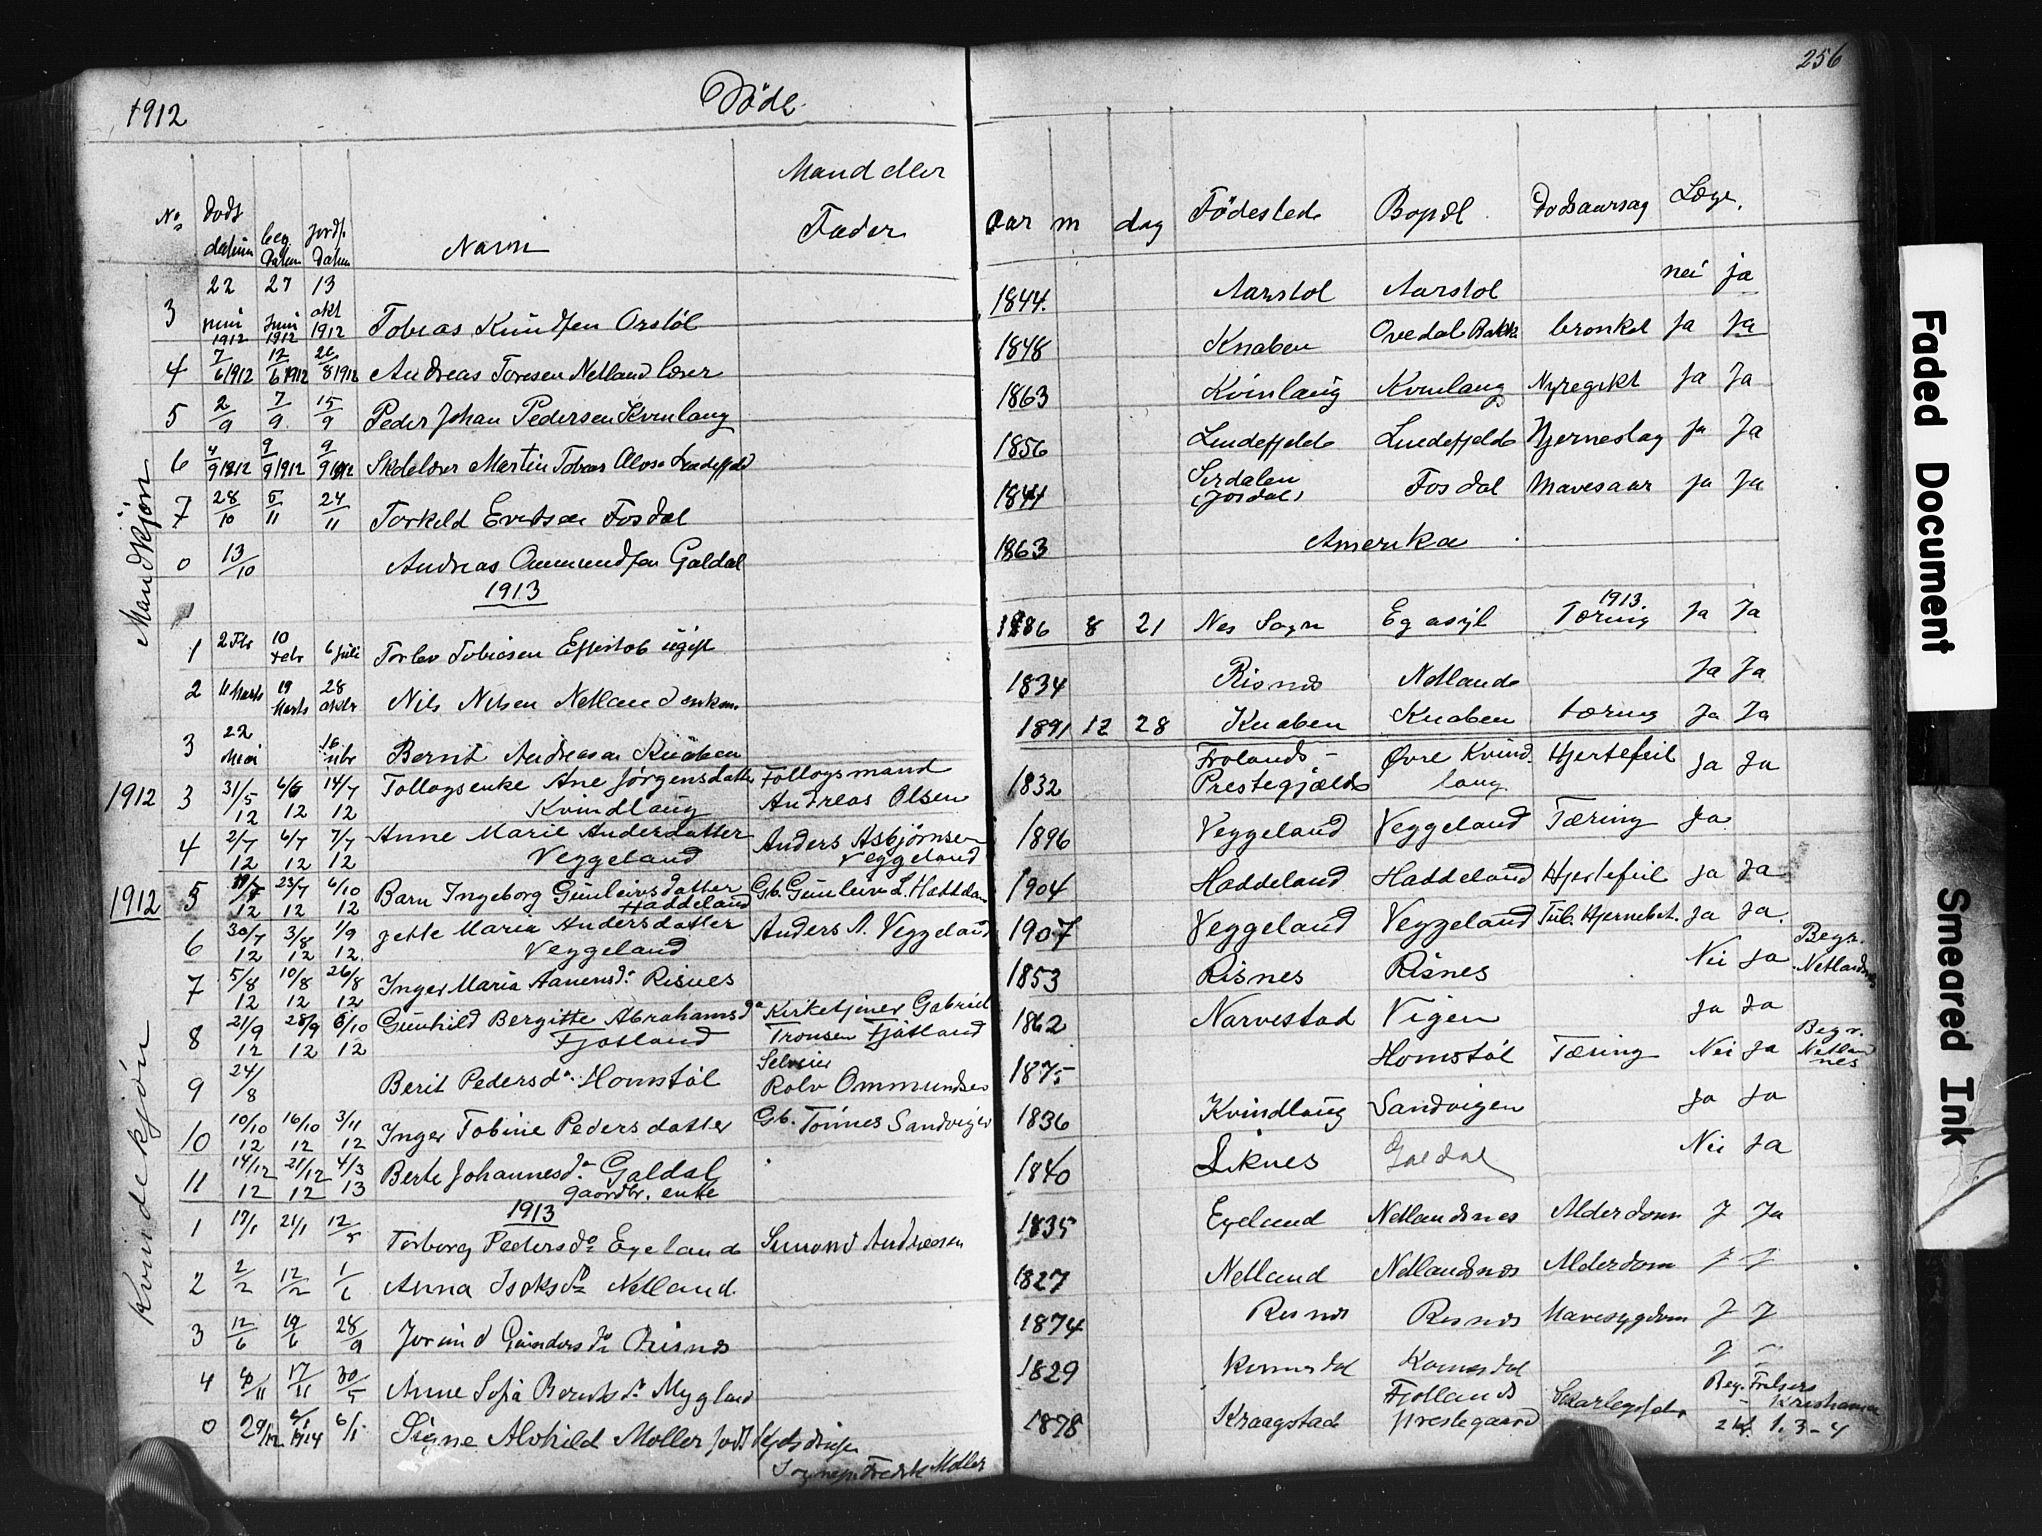 1912 Døde 256
No Dødsdatum beg. Datum Jordf. Datum Navn Mand eller Fader Aar m dag Fødested Bopæl Dødsaarsag Læge.
Mandkjøn
3 22 juni 1912 27 Juni 1912 13 okt 1912 Tobias Knudsen Orstöl 1844. Aarstol Aarstol nei ja
4 7/6 1912 12/6 1912 26/8 1912 Andreas Toresen Netland lærer 1848 Knaben Ovedal Bakke bronkit Ja Ja
5 2/9 7/9 15/9 Peder Johan Pedersen Kvinlaug 1863 Kvinlaug Kvinlaug Nyregikt Ja Ja
6 4/9 1912 9/9 1912 9/9 1912 Skolelærer Martin Tobias Lindefjeld 1856 Lindefjeld Lindefjeld Hjerneslag Ja Ja
7 28/10 5/11 24/11 Torkild Evertsen Fosdal 1844 Sirdalen (Josdal) Fosdal Mavesaar Ja Ja
0 13/10 Andreas Ommundsen Galdal 1863 Amerika
1913
1 2 Febr 10 Febr 6 Juli Torlev Tobiasen Effestøl ugift 1886 8 21 Nes Sogn Eg asyl 1913. Tæring Ja Ja
2 11 Marts 19 Marts 28 oktbr Nils Nilsen Netland enkem. 1834 Risnes Netland Ja Ja
3 22 Mai 16 nbr Bernt Andreasen Knaben 1891 12 28 Knaben Knaben tæring Ja Ja
1912 3 31/5 12 6/6 12 14/7 12 Follogsenke Ane Jørgensdatter Kvindlaug Follogsmand Andreas Olsen 1832 Frolands- Prestegjæld Øvre Kvindlaug Hjertefeil Ja Ja
4 2/7 12 6/7 12 7/7 12 Anne Marie Andersdatter Veggeland Anders Asbjørnsen Veggeland 1896 Veggeland Veggeland Tæring Ja
1912 5 19/7 12 23/7 12 6/10 12 Barn Ingeborg Gunleivsdatter Haddeland Gb. Gunleiv L. Haddeland 1904 Haddeland Haddeland Hjertefeil Ja Ja
6 30/7 12 3/8 12 1/9 12 Jette Maria Andersdatter Veggeland Anders A. Veggeland 1907 Veggeland Veggeland Tub. Hjernebet. Ja Ja.
7 5/8 12 10/8 12 26/8 12 Inger Maria Aanensd. Risnes 1853 Risnes Risnes Nei Ja Begr. Netlandsnes
Kvindekjøn
8 21/9 12 28/9 12 6/10 12 Gunhild Bergitte Abrahamsda Fjotland Kirketjener Gabriel Tronsen Fjotland 1862 Narvestad Vigen Ja Ja
9 24/8 Berit Pedersda. Homstøl Rolv Ommundsen 1875 Homstøl Tæring Nei Ja Begr. Netlandnes
10 10/10 12 16/10 12 3/11 12 Inger Tobine Pedersdatter Gb. Tönnes Sandvigen 1836 Kvindlaug Sandvigen Ja Ja
11 14/12 12 21/12 12 4/3 13 Berte Johannesda. Galdal gaardbr. enke 1840 Liknes Galdal Nei Ja
1913
1 17/1 21/1 12/5 Torborg Pedersda Egeland Simond Andreasen 1835 Egeland Netlandsnes Alderdom J Ja
2 2/2 12/2 1/6 Anna Isaksda Netland 1827 Netland Netlandsnes Alderdom J J
3 12/6 19/6 28/9 Jorund Gundersda Risnes 1874 Risnes Risnes Mavesygdom J J
4 17/11 30/5 Anne Sofia Berntsda Mygland 1829 Kvinesdal J
0 29/12 6/1 Signe Alvhild Møller født Sognepr. Fredrik Møller 1878 Kraagstad Fjotlands prestegaard Beg. Frelsers Kristiania
Faded Document
Smeared Ink